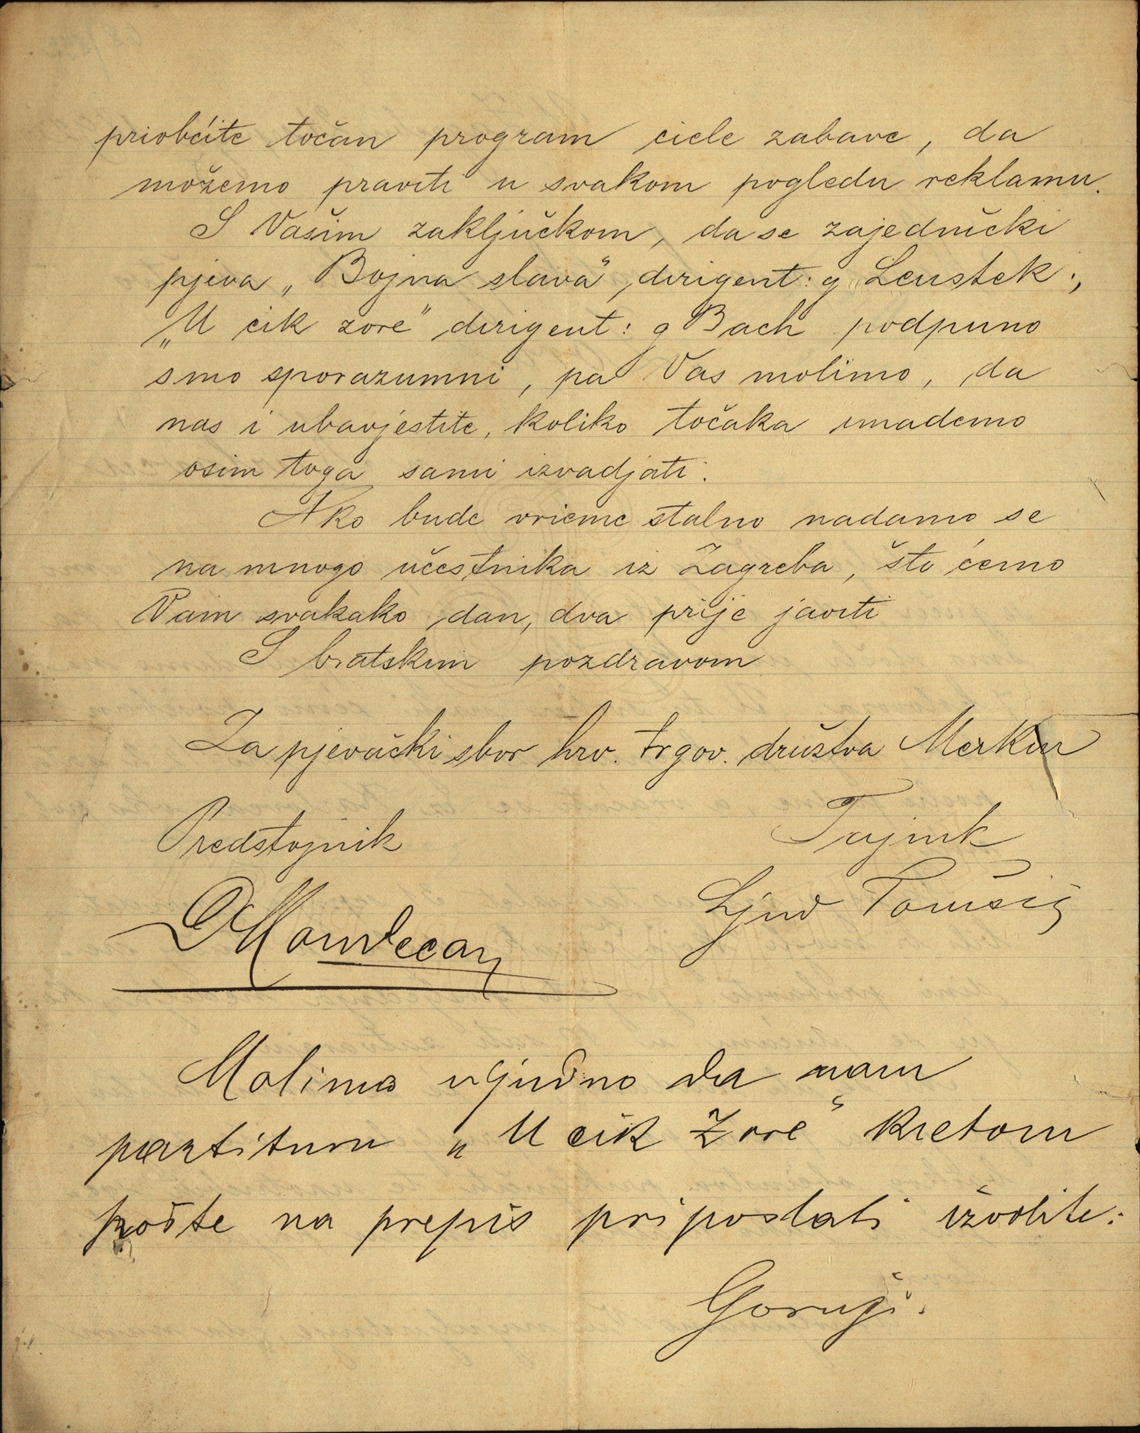 priobćite točan program ciele zabave, da
možemo praviti u svakom pogledu reklamu.
S Vašim zaključkom, da se zajednički
pjeva „Bojna slava", dirigent: g Leustek;
„U cik zore" dirigent: g Bach podpuno
smo sporazumni, pa Vas molimo, da
nas i ubavjestite, koliko točaka imademo
osim toga sami izvadjati.
Ako bude vrieme stalno nadamo se
na mnogo učestnika iz Zagreba, što ćemo
Vam svakako dan, dva prije javiti
S bratskim pozdravom
Za pjevački sbor hrv. trgov. družtva Merkur
Predstojnik
Tajnik
Ljud Tomšić
Molimo uljudno da nam
partituru „U cik Zore" kretom
pošte na prepis pripослati izvolite:
Gornji.